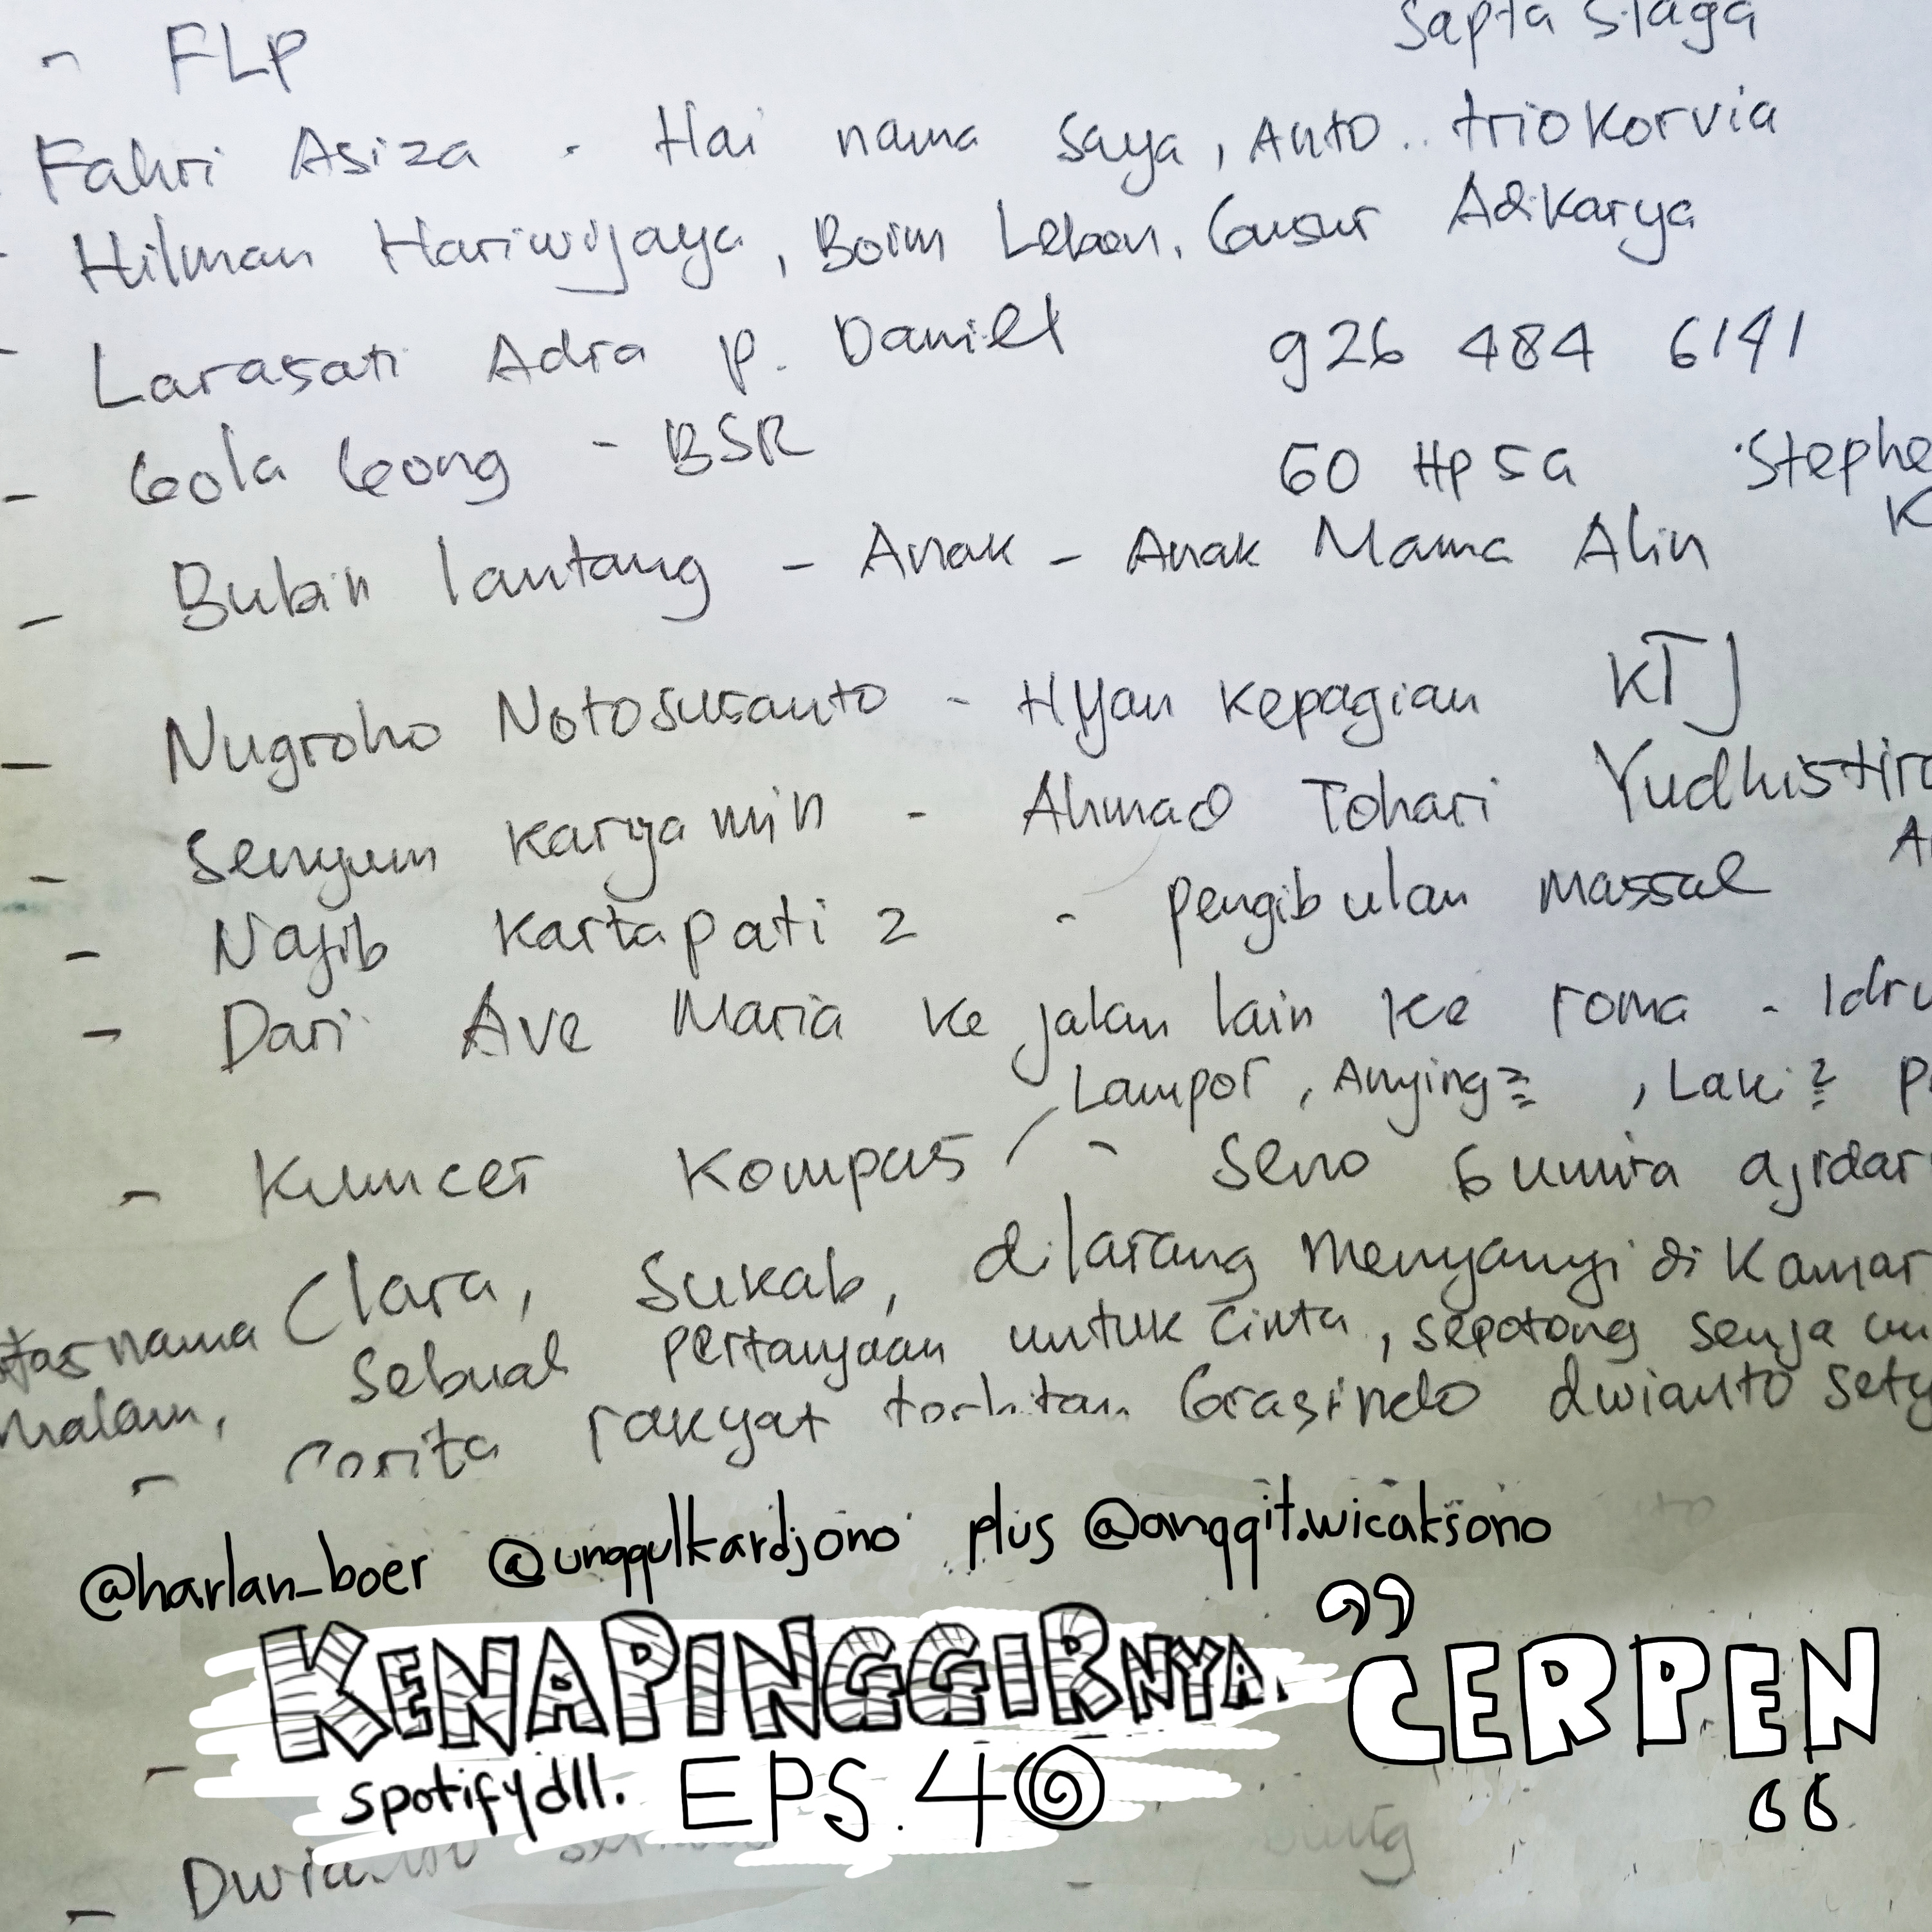 Sapta Siaga
- FLP
Fahri Asiza - Hai nama saya, Anto.. triokorvia
- Hilman Hariwijaya, Boim Lebon, Gusur Adikarya
- Larasati Adra P. Daniel 926 484 6141
- Gola Gong - BSR 60 Hp 5a Stephe
K
- Bubin lantang - Anak - Anak Mama Alin
- Nugroho Notosusanto - Hujan Kepagian KTJ
- Senyum Karyamin - Ahmad Tohari Yudhistira
- Najib Kartapati 2 - pengibulan massal A
- Dari Ave Maria ke jalan lain ke roma - Idru
Lampor, Anying2, Laki2 P
- Kumcer Kompas - Seno Gumira ajidar
Clara, Sukab, dilarang menyanyi di Kamar
atas nama malam, Sebuah pertanyaan untuk cinta, sepotong senja un
- Cerita rakyat terbitan Grasindo dwianto sety
@harlan_boer @unggulkardjono plus @anggit.wicaksono
KENAPINGGIRNYA. ,,CERPEN“
spotifydll. EPS. 40